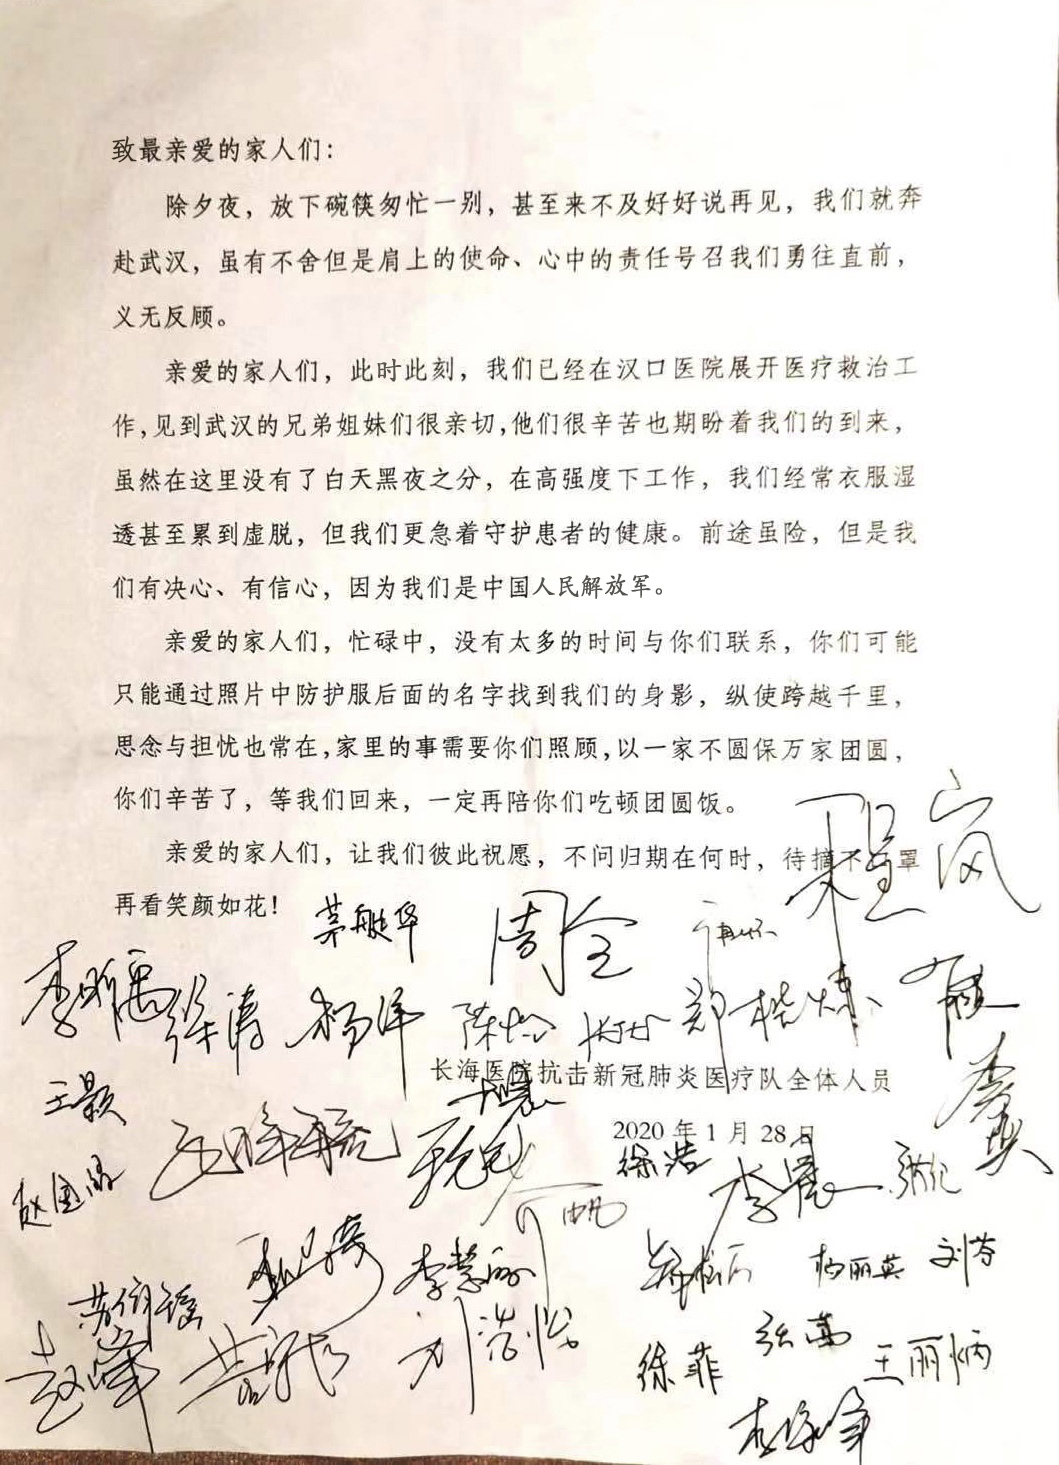 致最亲爱的家人们：
除夕夜，放下碗筷匆忙一别，甚至来不及好好说再见，我们就奔
赴武汉，虽有不舍但是肩上的使命、心中的责任号召我们勇往直前，
义无反顾。
亲爱的家人们，此时此刻，我们已经在汉口医院展开医疗救治工
作，见到武汉的兄弟姐妹们很亲切，他们很辛苦也期盼着我们的到来，
虽然在这里没有了白天黑夜之分，在高强度下工作，我们经常衣服湿
透甚至累到虚脱，但我们更急着守护患者的健康。前途虽险，但是我
们有决心、有信心，因为我们是中国人民解放军。
亲爱的家人们，忙碌中，没有太多的时间与你们联系，你们可能
只能通过照片中防护服后面的名字找到我们的身影，纵使跨越千里，
思念与担忧也常在，家里的事需要你们照顾，以一家不圆保万家团圆，
你们辛苦了，等我们回来，一定再陪你们吃顿团圆饭。
亲爱的家人们，让我们彼此祝愿，不问归期在何时，待摘下口罩
再看笑颜如花！
程岚
周全
徐涛 杨洋
长海医院抗击新冠肺炎医疗队全体人员
王颢
2020 年 1 月 28 日
徐浩
李晨
李慧
杨丽英 刘芬
赵峰
徐菲
王丽炳